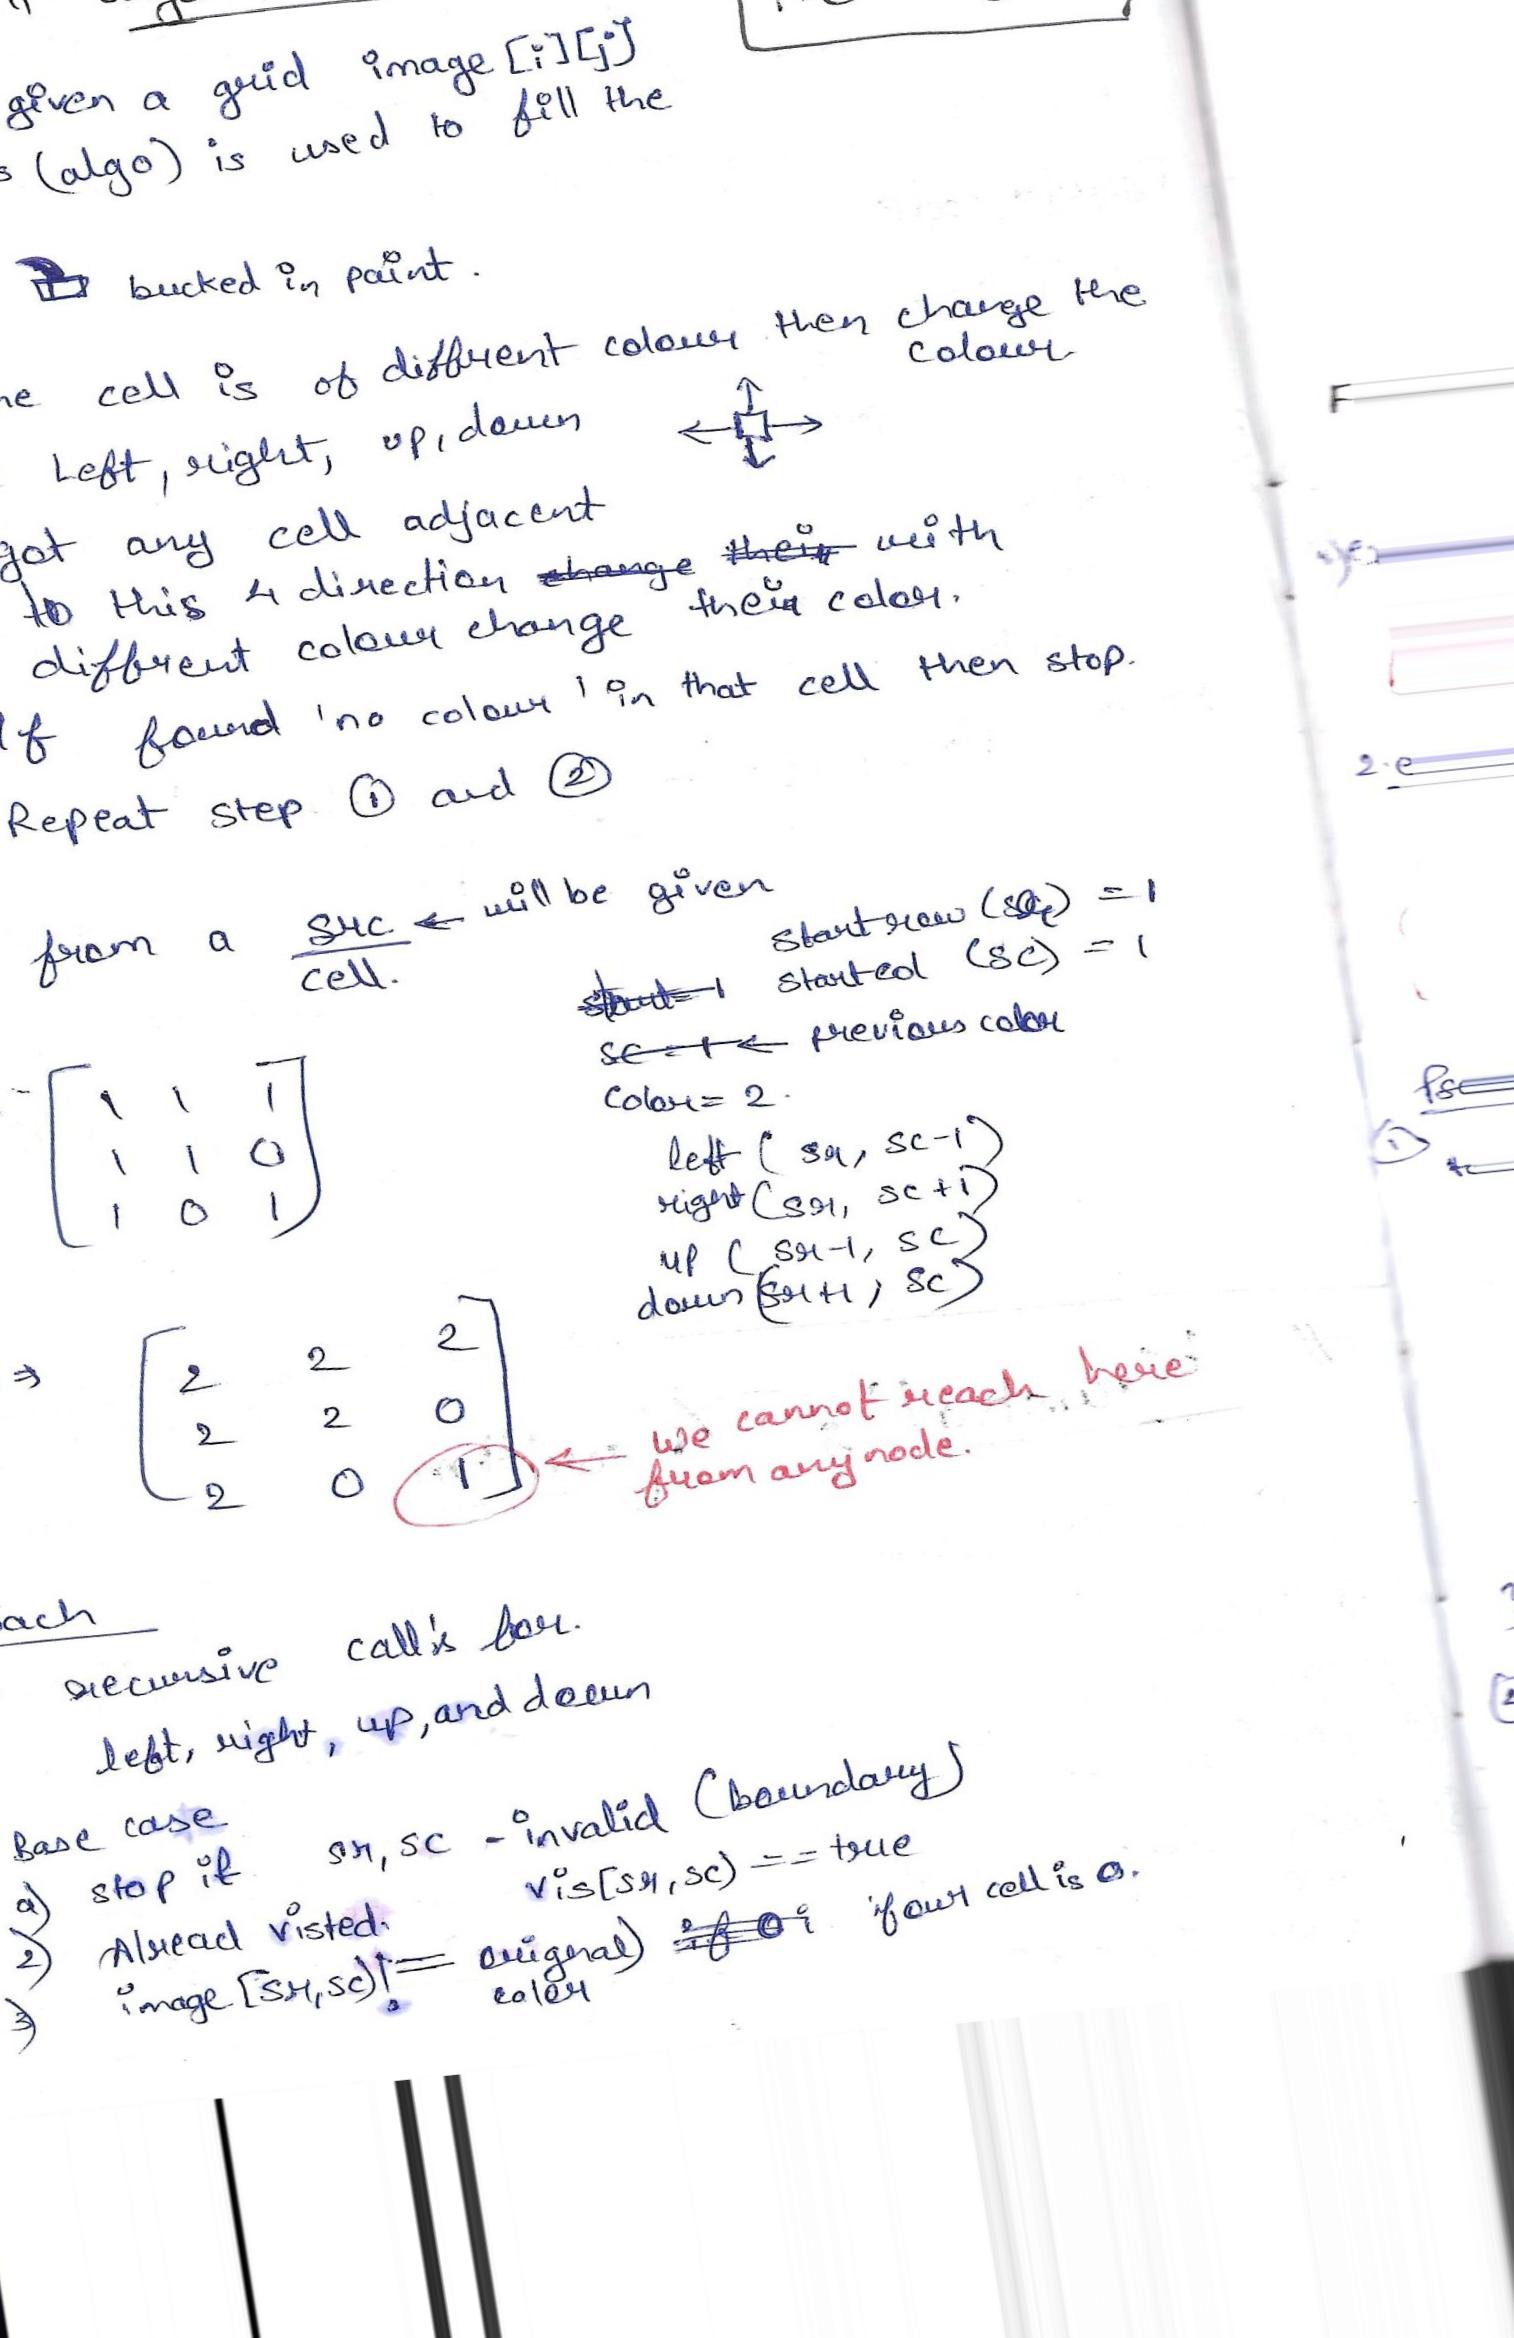 given a grid image [i][j]
s (algo) is used to fill the
bucked in paint.
ne cell is of different colour then change the
colour
Left, right, up, down
got any cell adjacent
to this 4 direction change their with
different colour change their color.
If found 'no colour' in that cell then stop.
Repeat step ① and ②
from a src ← will be given
cell.
start row (sr) = 1
start = 1 startcol (sc) = 1
sc = 1 ← previous color
Color = 2.
1 1 1
1 1 0
1 0 1
left (sr, sc-1)
right (sr, sc+1)
up (sr-1, sc)
down (sr+1, sc)
⇒ 2 2 2
2 2 0
2 0 1
← we cannot reach here
from any node.
oach
recursive call's for.
left, right, up, and down
Base case
a) stop if sr, sc - invalid (boundary)
2) Alread visted. vis[sr, sc) == true
3) image [sr, sc) != orignal) if 0; if our cell is 0.
color
F
2.e
Ps
①